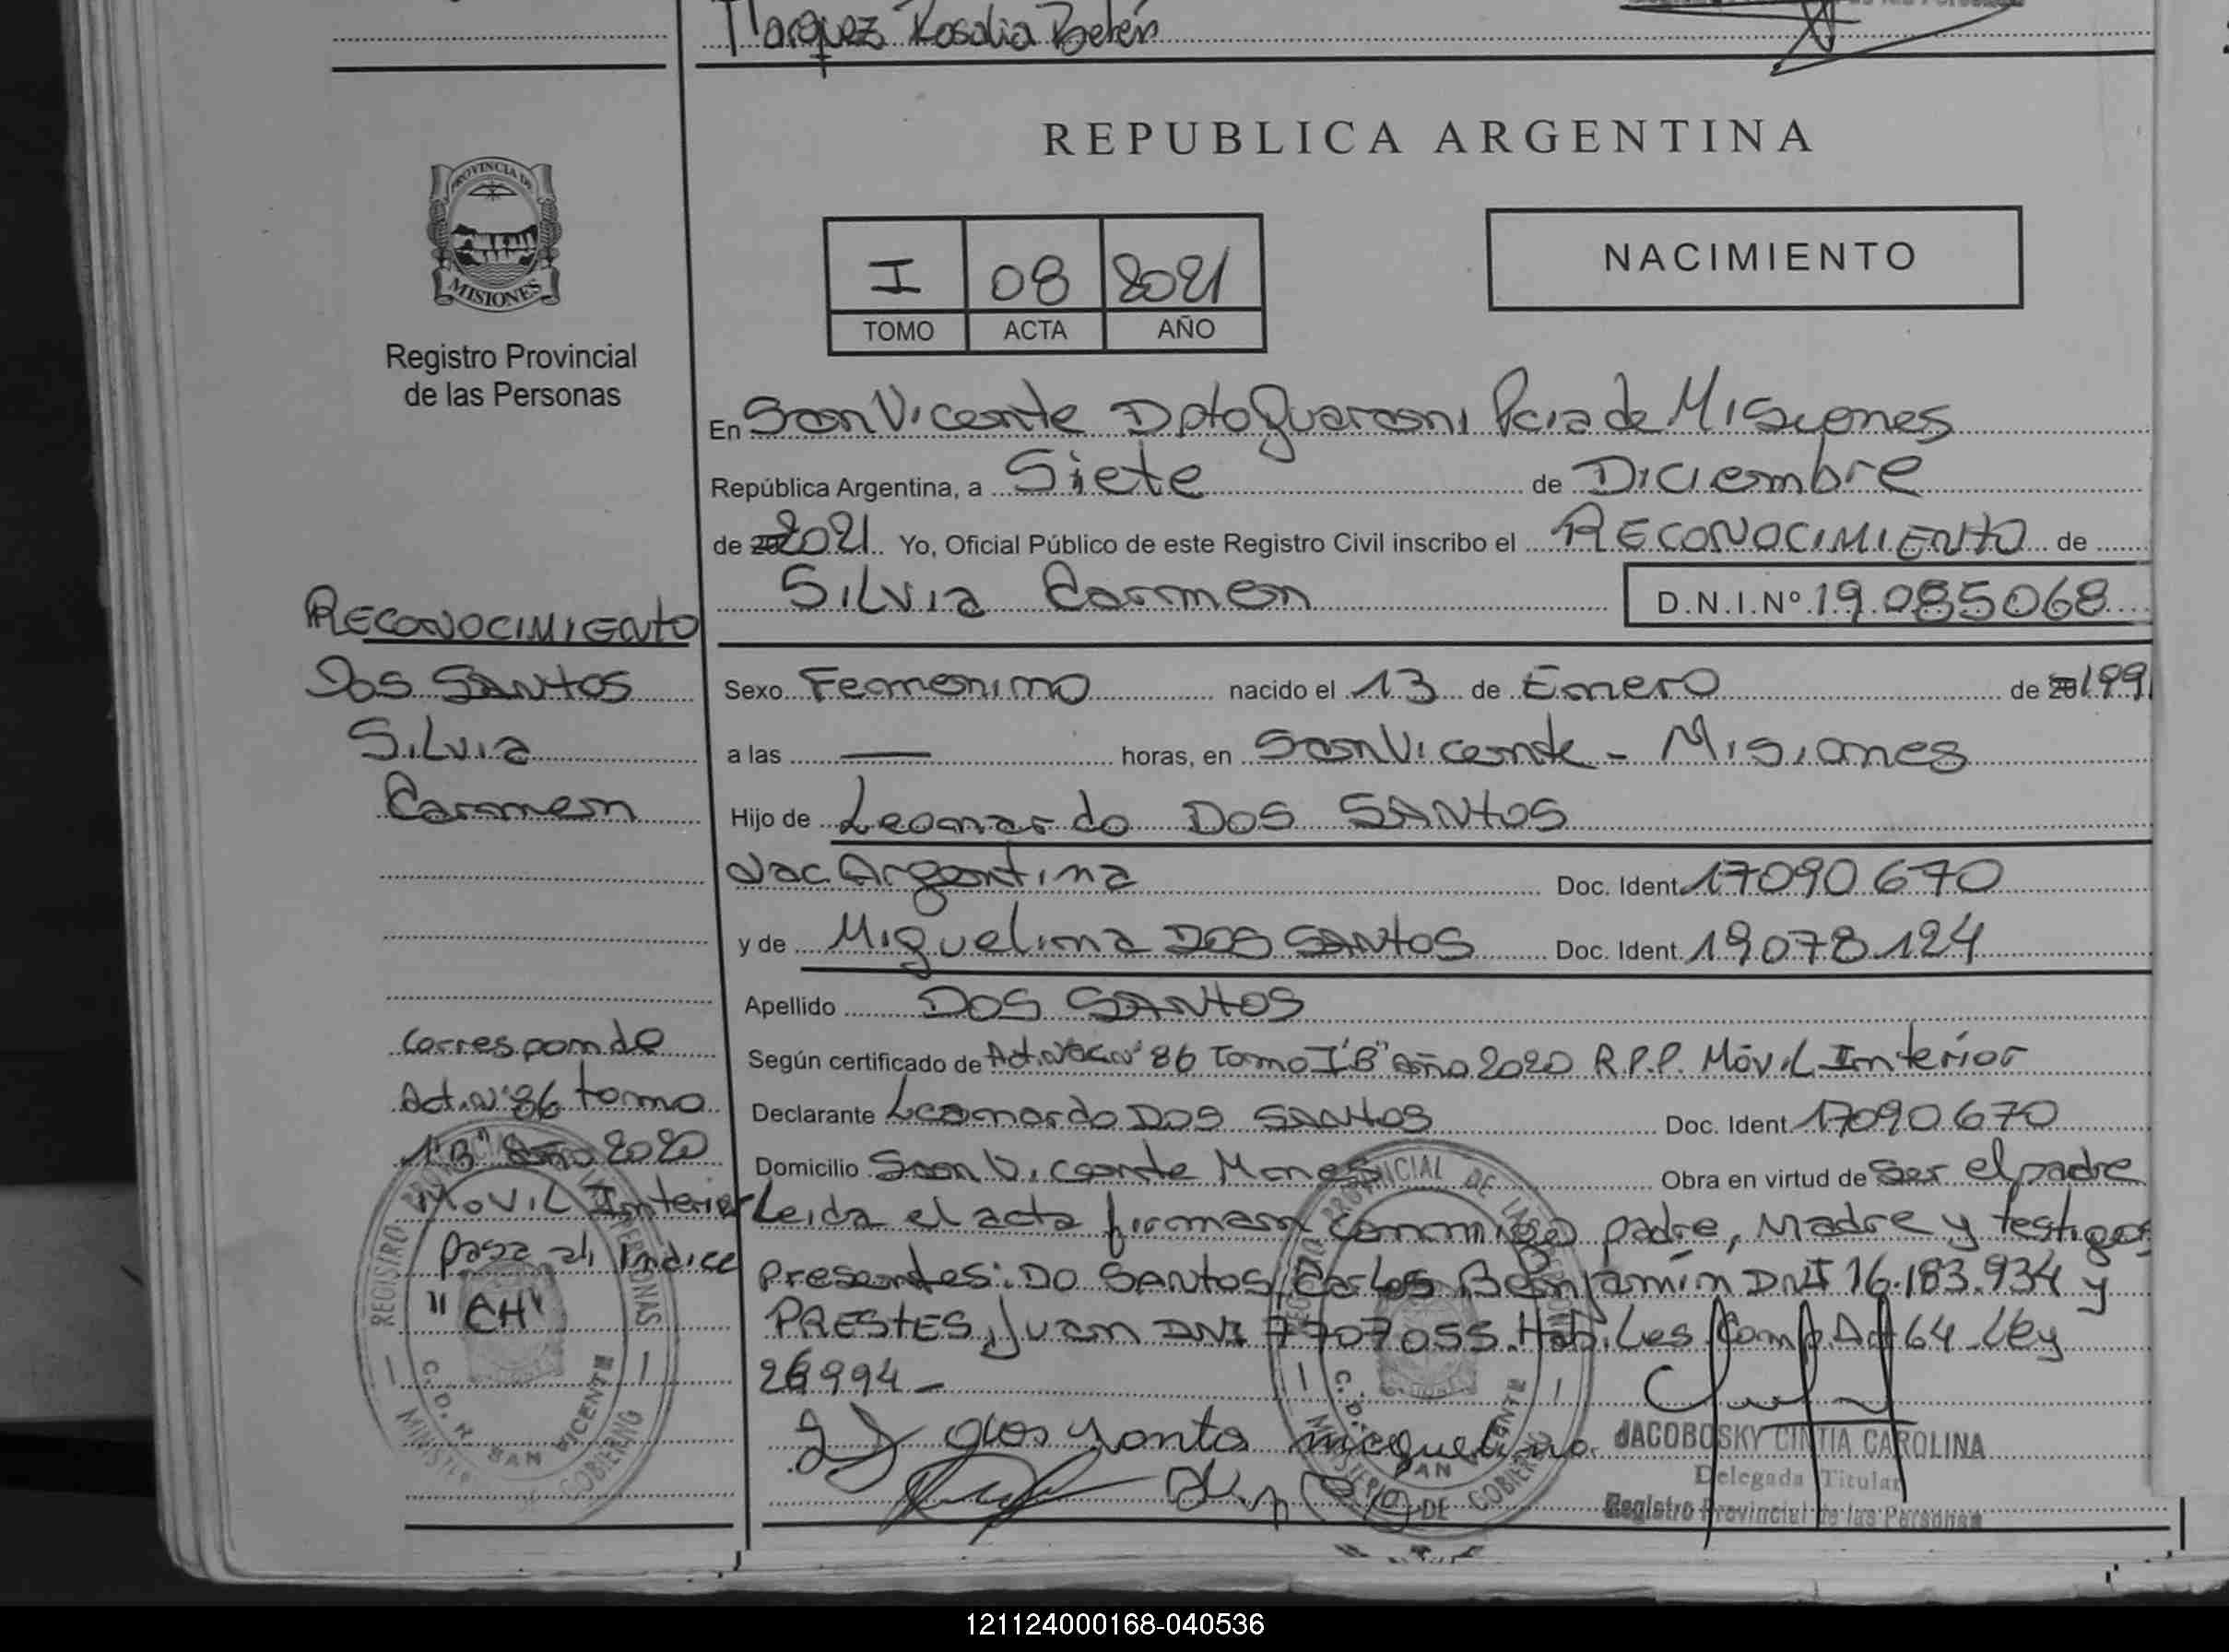 Marquez Rosalia Belén
PROVINCIA DE
MISIONES
Registro Provincial
de las Personas
REPUBLICA ARGENTINA
I 08 2021
TOMO ACTA AÑO
NACIMIENTO
En San Vicente Dpto Guarani Pcia de Misiones
República Argentina, a Siete de Diciembre
de 2021 Yo, Oficial Público de este Registro Civil inscribo el RECONOCIMIENTO de
Silvia Carmen D.N.I.Nº 19.085068
RECONOCIMIENTO
Dos SANTOS
Silvia
Carmen
Sexo Femenino nacido el 13 de Enero de 20 199
a las — horas, en San Vicente - Misiones
Hijo de Leonardo DOS SANTOS
Nac Argentina Doc. Ident. 17090670
y de Miguelina DOS SANTOS Doc. Ident. 19078.124
Apellido DOS SANTOS
Según certificado de Act. Nac Nº 86 Tomo I"B" Año 2020 R.P.P. Móvil Interior
Declarante Leonardo DOS SANTOS Doc. Ident. 17090670
Domicilio San Vicente Mnes Obra en virtud de Ser el padre
Leida el acta firman conmigo padre, Madre y testigos
presentes: DO SANTOS, Carlos Benjamín DNI 16.183.934 y
PRESTES, Juan DNI 7707055. Habiles Comp. Art 64 Ley
26994-
Corresponde
Act. Nº 86 tomo
1"B" Año 2020
Movil Interior
pasa al Indice
"CH"
REGISTRO PROVINCIAL DE LAS PERSONAS
C.D.R. SAN VICENTE
MINISTERIO DE GOBIERNO
dos santo miguelina
JACOBOSKY CINTIA CAROLINA
Delegada Titular
Registro Provincial de las Personas
121124000168-040536